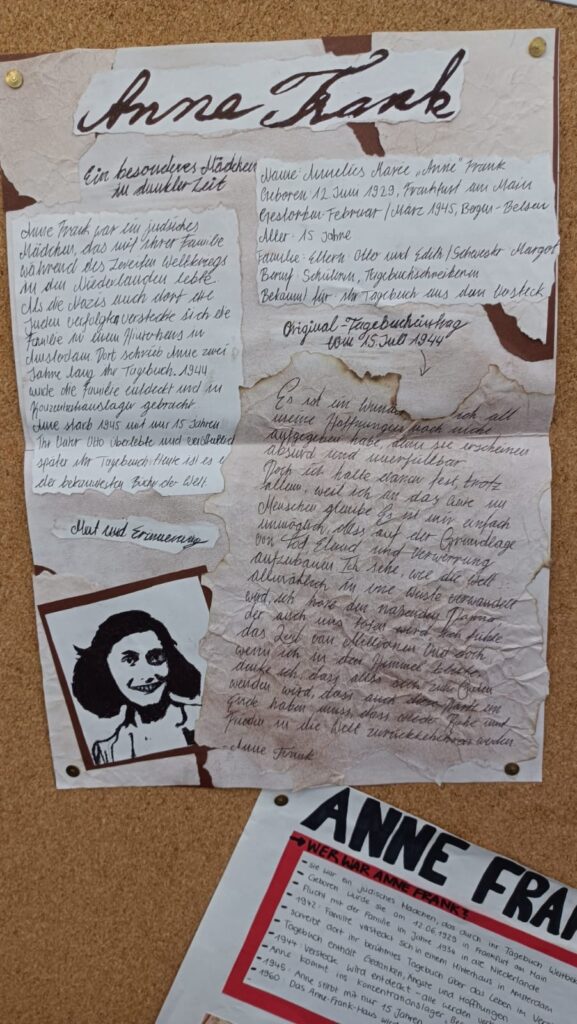 Anne Frank
Ein besonderes Mädchen
in dunkler Zeit
Anne Frank war ein jüdisches
Mädchen, das mit ihrer Familie
während des Zweiten Weltkriegs
in den Niederlanden lebte.
Als die Nazis auch dort die
Juden verfolgten, versteckte sich die
Familie in einem Hinterhaus in
Amsterdam. Dort schrieb Anne zwei
Jahre lang ihr Tagebuch. 1944
wurde die Familie entdeckt und in
Konzentrationslager gebracht.
Anne starb 1945 mit nur 15 Jahren.
Ihr Vater Otto überlebte und
später ihr Tagebuch. Heute ist es
der bekanntesten Bücher der Welt
Mut und Erinnerung
Name: Annelies Marie „Anne“ Frank
Geboren 12 Juni 1929, Frankfurt am Main
Gestorben Februar / März 1945, Bergen-Belsen
Alter: 15 Jahre
Familie: Eltern Otto und Edith / Schwester Margot
Beruf: Schülerin, Tagebuchschreiberin
Bekannt für ihr Tagebuch aus dem Versteck
Original-Tagebucheintrag
vom 15 Juli 1944
Es ist ein Wunder ich all
meine Hoffnungen noch nicht
aufgegeben habe, denn sie erscheinen
absurd und unerfüllbar
Doch ich halte daran fest, trotz
allem, weil ich an das Gute im
Menschen glaube Es ist mir einfach
unmöglich, alles auf der Grundlage
von Tod Elend und Verwirrung
aufzubauen Ich sehe, wie die Welt
allmählich in eine Wüste verwandelt
wird, ich höre den Donner
der auch uns töten wird ich fühle
das Leid von Millionen Und doch,
wenn ich in den Himmel blicke,
denke ich, dass alles sich zum Guten
wenden wird, dass auch diese Härte ein
Ende haben muss, dass wieder Ruhe und
Frieden in die Welt zurückkehren werden
- Anne Frank
ANNE FRA
WER WAR ANNE FRANK?
- sie war ein jüdisches Mädchen, das durch ihr Tagebuch
- Geboren wurde sie am 12.06.1929 in Frankfurt am Main
- Flucht mit der Familie im Jahre 1934 in die Niederlande
- 1942: Familie versteckt sich in einem Hinterhaus in Amsterdam
- schreibt dort ihr berühmtes Tagebuch über das Leben im
- Tagebuch enthält Gedanken, Ängste und Hoffnungen
- 1944: Versteck wird entdeckt - alle werden
- Anne kommt ins Konzentrationslager
- 1945: Anne stirbt mit nur 15 Jahren
- 1960: Das Anne-Frank-Haus